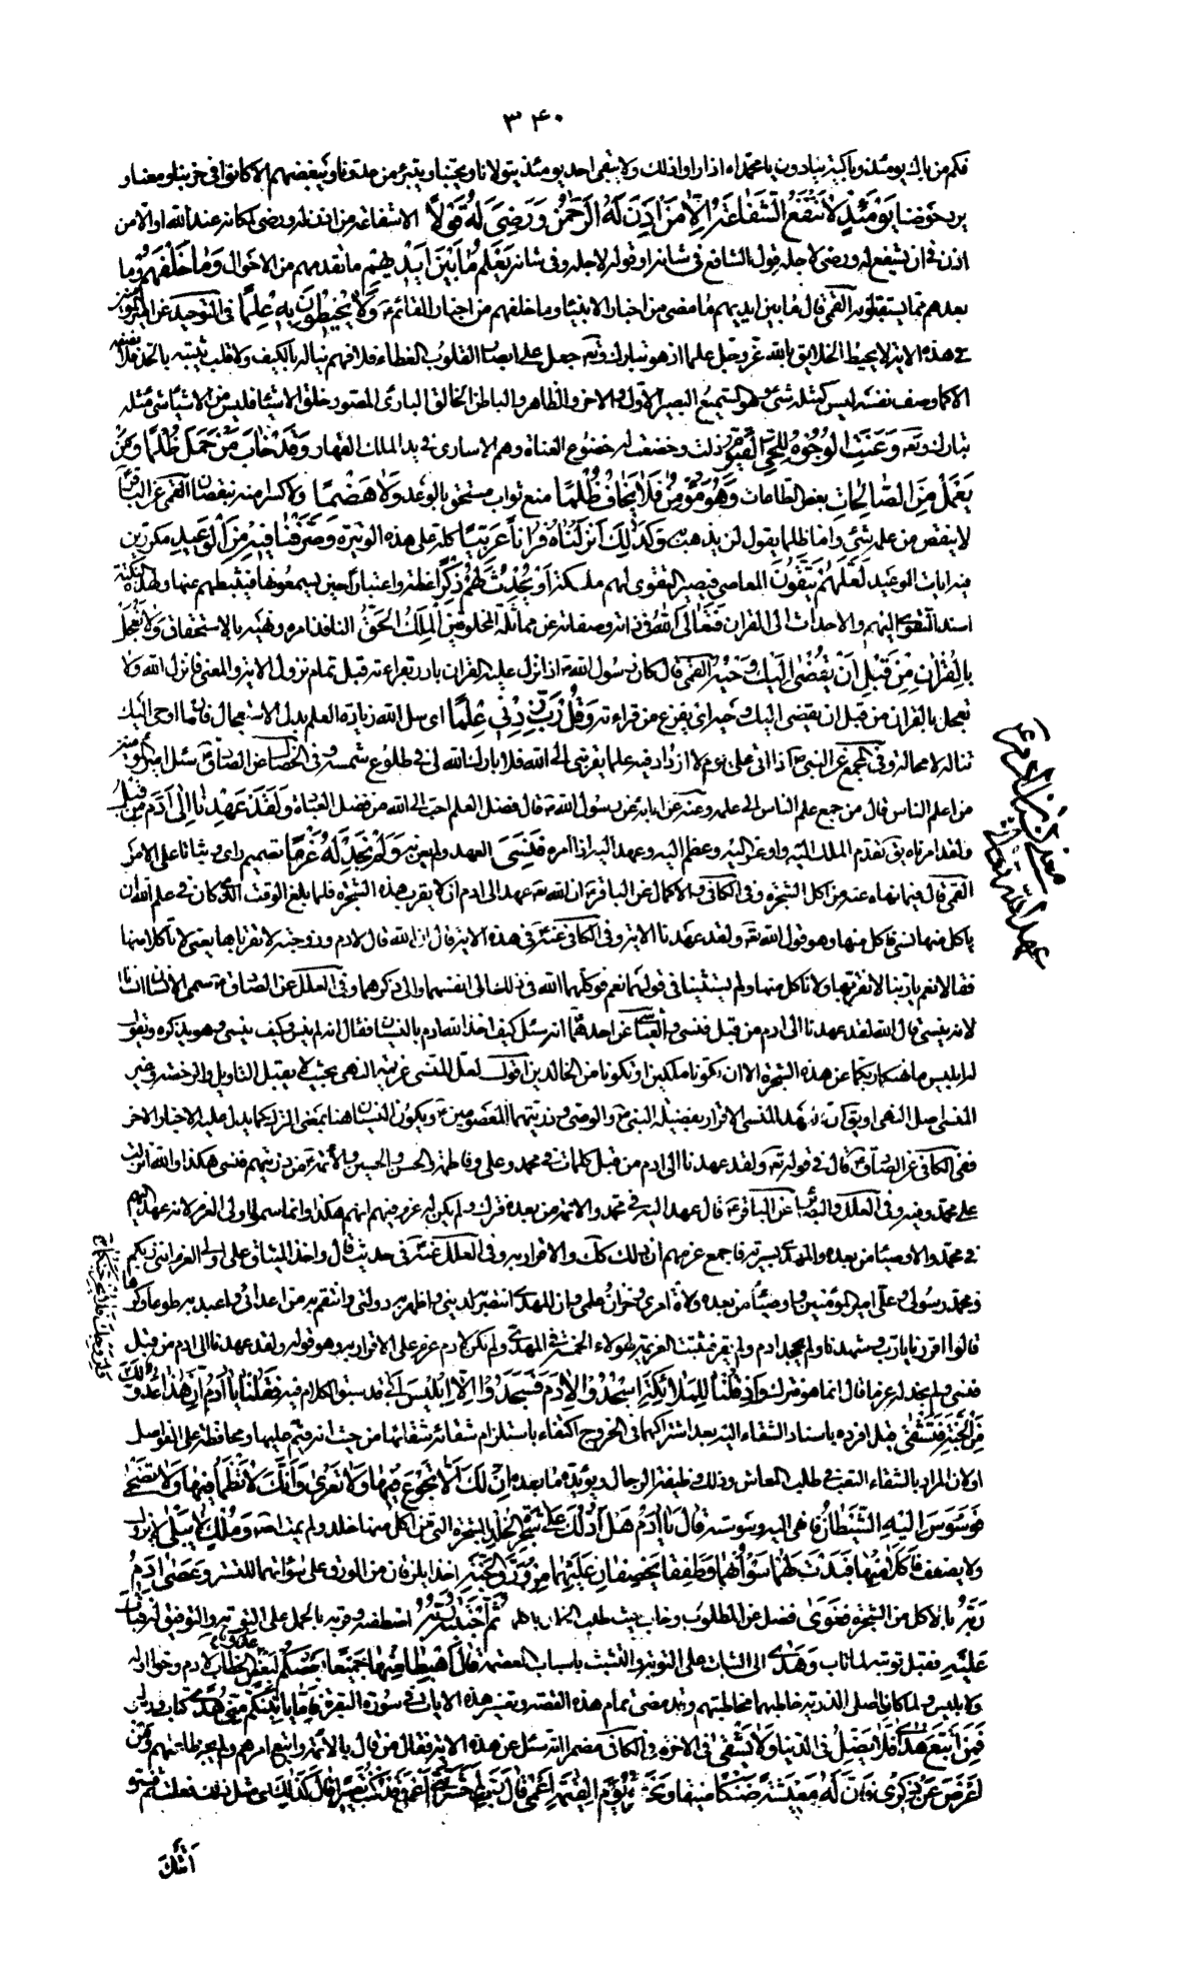 ۳۴۰
فكم من باك يومئذ وباكية ينادون يا محمداه اذا راوا ذلك ولا يبقى احد يومئذ يتولانا ويحبنا ويتبرء من عدونا ويبغضهم الا كانوا فى حزبنا ومعنا و
يرد حوضنا يَوْمَئِذٍ لا تَنْفَعُ الشَّفاعَةُ اِلّا مَنْ اَذِنَ لَهُ الرَّحْمنُ وَرَضِيَ لَهُ قَوْلاً الا شفاعة من اذن له ورضى لمكانه عند الله او الا من
اذن فى ان يشفع له ورضى لاجله قول الشافع فى شانه او قوله لاجله وفى شانه يَعْلَمُ ما بَيْنَ اَيْديهِمْ ما تقدمهم من الاحوال وَما خَلْفَهُمْ وما
بعدهم مما يستقبلونه القمى قال ما بين ايديهم ما مضى من اخبار الانبياء وما خلفهم من اخبار القائم ع وَلا يُحيطُونَ بِهِ عِلْمًا فى التوحيد عن امير المؤمنين
فى هذه الاية لا يحيط الخلايق بالله عز وجل علما اذ هو تبارك وتع جعل على ابصار القلوب الغطاء فلا فهم يناله بالكيف ولا قلب يثبته بالحد فلا تصفه
الا كما وصف نفسه ليس كمثله شئ وهو السميع البصير الاول والاخر والظاهر والباطن الخالق البارئ المصور خلق الاشياء فليس من الاشياء شئ مثله
تبارك وتع وَعَنَتِ الْوُجُوهُ لِلْحَيِّ الْقَيُّومِ ذلت وخضعت له خضوع العناة وهم الاسارى فى يد الملك القهار وَقَدْ خابَ مَنْ حَمَلَ ظُلْمًا وَمَنْ
يَعْمَلْ مِنَ الصّالِحاتِ بعض الطاعات وَهُوَ مُؤْمِنٌ فَلا يَخافُ ظُلْمًا منع ثواب مستحق بالوعد وَلا هَضْمًا ولا كسرا منه بنقصان القمى عن الباقر ع
لا ينقص من عمله شئ واما ظلما يقول لن يذهب به وَكَذلِكَ اَنْزَلْناهُ قُرْآناً عَرَبِيًّا كله على هذه الوتيرة وَصَرَّفْنا فيهِ مِنَ الْوَعيدِ مكررين
فيه ايات الوعيد لَعَلَّهُمْ يَتَّقُونَ المعاصى فيصير التقوى لهم ملكة اَوْ يُحْدِثُ لَهُمْ ذِكْرًا عظة واعتبارا حين يسمعونها فيثبطهم عنها ولهذه النكتة
اسند التقوى اليهم والاحداث الى القران فَتَعالَى اللهُ فى ذاته وصفاته عن مماثلة المخلوقين الْمَلِكُ الْحَقُّ النافذ امره ونهيه بالاستحقاق وَلا تَعْجَلْ
بِالْقُرْآنِ مِنْ قَبْلِ اَنْ يُقْضى اِلَيْكَ وَحْيُهُ القمى قال كان رسول الله ص اذا نزل عليه القران بادر بقراءته قبل تمام نزول الاية والمعنى فانزل الله ولا
تعجل بالقران من قبل ان يقضى اليك وحيه اى يفرغ من قراءته وَقُلْ رَبِّ زِدْني عِلْمًا اى سل الله زيادة العلم بدل الاستعجال فان ما اوحى اليك
تناله لا محالة وفى المجمع عن النبى ص اذا اتى على يوم لا ازداد فيه علما يقربنى الى الله فلا بارك الله لى فى طلوع شمسه وفى الخصال عن الصادق ع سئل امير المؤمنين
من اعلم الناس قال من جمع علم الناس الى علمه وعنه عن ابائه عن رسول الله ص قال فضل العلم احب الى الله من فضل العبادة وَلَقَدْ عَهِدْنا اِلى آدَمَ مِنْ قَبْلُ
ولقد امرناه يق تقدم الملك اليه واوعز اليه وعظم اليه وعهد اليه اذا امره فَنَسِيَ العهد ولم يعن به وَلَمْ نَجِدْ لَهُ عَزْمًا تصميم راى وثباتا على الامر
القمى قال فيما نهاه عنه من اكل الشجرة وفى الكافى والاكمال عن الباقر ع ان الله تع عهد الى ادم ان لا يقرب هذه الشجرة فلما بلغ الوقت الذى كان فى علم الله ان
ياكل منها نسى فاكل منها وهو قول الله تع ولقد عهدنا الاية وفى الكافى عنه ع فى هذه الاية قال ان الله قال لادم وزوجته لا تقرباها يعنى لا تاكلا منها
فقالا نعم يا ربنا لا نقربها ولا ناكل منها ولم يستثنيا فى قولهما نعم فوكلهما الله فى ذلك الى انفسهما والى ذكرهما وفى العلل عن الصادق ع سمى الانسان انسانا
لانه ينسى قال الله ولقد عهدنا الى ادم من قبل فنسى والعياشى عن احدهما انه سئل كيف اخذ الله ادم بالنسيان فقال انه لم ينس وكيف ينسى وهو يذكره ويقول
له ابليس ما نهيكما ربكما عن هذه الشجرة الا ان تكونا ملكين او تكونا من الخالدين اقول لعل المنسى عزيمة النهى بحيث لا يقبل التاويل والرخصة وغير
المنسى اصل النهى او يق ان هذا المنسى الاقرار بفضيلة النبى ص والوصى وذريتهما المعصومين ع ويكون النسيان هنا بمعنى الترك كما يدل عليه الاخبار الاخر
ففى الكافى عن الصادق ع قال فى قوله تع ولقد عهدنا الى ادم من قبل كلمات فى محمد وعلى وفاطمة والحسن والحسين والائمة ع من ذريتهم فنسى هكذا والله انزلت
على محمد ص وفيه وفى العلل والبصائر عن الباقر ع قال عهد اليه فى محمد والائمة من بعده فترك ولم يكن له عزم فيهم انهم هكذا وانما سمى اولى العزم لانه عهد اليهم
فى محمد والاوصياء من بعده والمهدى وسيرته فاجمع عزمهم ان ذلك كك والاقرار به وفى العلل عنه ع فى حديث قال واخذ الميثاق على اولى العزم اننى ربكم
ومحمد رسولى وعلى امير المؤمنين واوصياؤه من بعده ولاة امرى وخزان علمى وان المهدى انتصر به لدينى واظهر به دولتى وانتقم به من اعدائى واعبد به طوعا وكرها
قالوا اقررنا يا رب وشهدنا ولم يجحد ادم ولم يقر فثبتت العزيمة لهؤلاء الخمسة فى المهدى ولم يكن لادم عزم على الاقرار به وهو قوله ولقد عهدنا الى ادم من قبل
فنسى ولم نجد له عزما قال انما هو فترك وَاِذْ قُلْنا لِلْمَلائِكَةِ اسْجُدُوا لِآدَمَ فَسَجَدُوا اِلّا اِبْليسَ اَبى قد سبق الكلام فيه فَقُلْنا يا آدَمُ اِنَّ هذا عَدُوٌّ لَكَ
مِنَ الْجَنَّةِ فَتَشْقى قيل افرده باسناد الشقاء اليه بعد اشتراكهما فى الخروج اكتفاء باستلزام شقائه شقائها من حيث انه قيم عليها ومحافظة على الفواصل
او لان المراد بالشقاء التعب فى طلب المعاش وذلك وظيفة الرجال ويؤيده ما بعده اِنَّ لَكَ اَلّا تَجُوعَ فيها وَلا تَعْرى وَاَنَّكَ لا تَظْمَأُ فيها وَلا تَضْحى
فَوَسْوَسَ اِلَيْهِ الشَّيْطانُ فانهى اليه وسوسته قالَ يا آدَمُ هَلْ اَدُلُّكَ عَلى شَجَرَةِ الْخُلْدِ الشجرة التى من اكل منها خلد ولم يمت اصلا وَمُلْكٍ لا يَبْلى لا يزول
ولا يضعف فَاَكَلا مِنْها فَبَدَتْ لَهُما سَوْآتُهُما وَطَفِقا يَخْصِفانِ عَلَيْهِما مِنْ وَرَقِ الْجَنَّةِ اخذا يلزقان من الورق على سوآتهما للتستر وَعَصى آدَمُ
رَبَّهُ بالاكل من الشجرة فَغَوى فضل عن المطلوب وخاب حيث طلب الخلد باكلها ثُمَّ اجْتَباهُ رَبُّهُ اصطفاه وقربه بالحمل على التوبة والتوفيق له فَتابَ
عَلَيْهِ فقبل توبته لما تاب وَهَدى الى الثبات على التوبة والتشبث باسباب العصمة قالَ اهْبِطا مِنْها جَميعًا بَعْضُكُمْ لِبَعْضٍ عَدُوٌّ الخطاب لادم وحوا او له
ولابليس ولما كانا اصلى الذرية خاطبهما مخاطبتهم وقد مضى تمام هذه القصة وتفسير هذه الايات فى سورة البقرة فَاِمّا يَأْتِيَنَّكُمْ مِنّي هُدًى كتاب ورسول
فَمَنِ اتَّبَعَ هُدايَ فَلا يَضِلُّ فى الدنيا وَلا يَشْقى فى الاخرة فى الكافى مضمرا انه سئل عن هذه الاية فقال من قال بالائمة واتبع امرهم ولم يجز طاعتهم وَمَنْ
اَعْرَضَ عَنْ ذِكْري فَاِنَّ لَهُ مَعيشَةً ضَنْكًا ضيقا وَنَحْشُرُهُ يَوْمَ الْقِيمَةِ اَعْمى قالَ رَبِّ لِمَ حَشَرْتَني اَعْمى وَقَدْ كُنْتُ بَصيرًا قالَ كَذلِكَ اى مثل ذلك فعلت ثم فسره
اَتَتْكَ